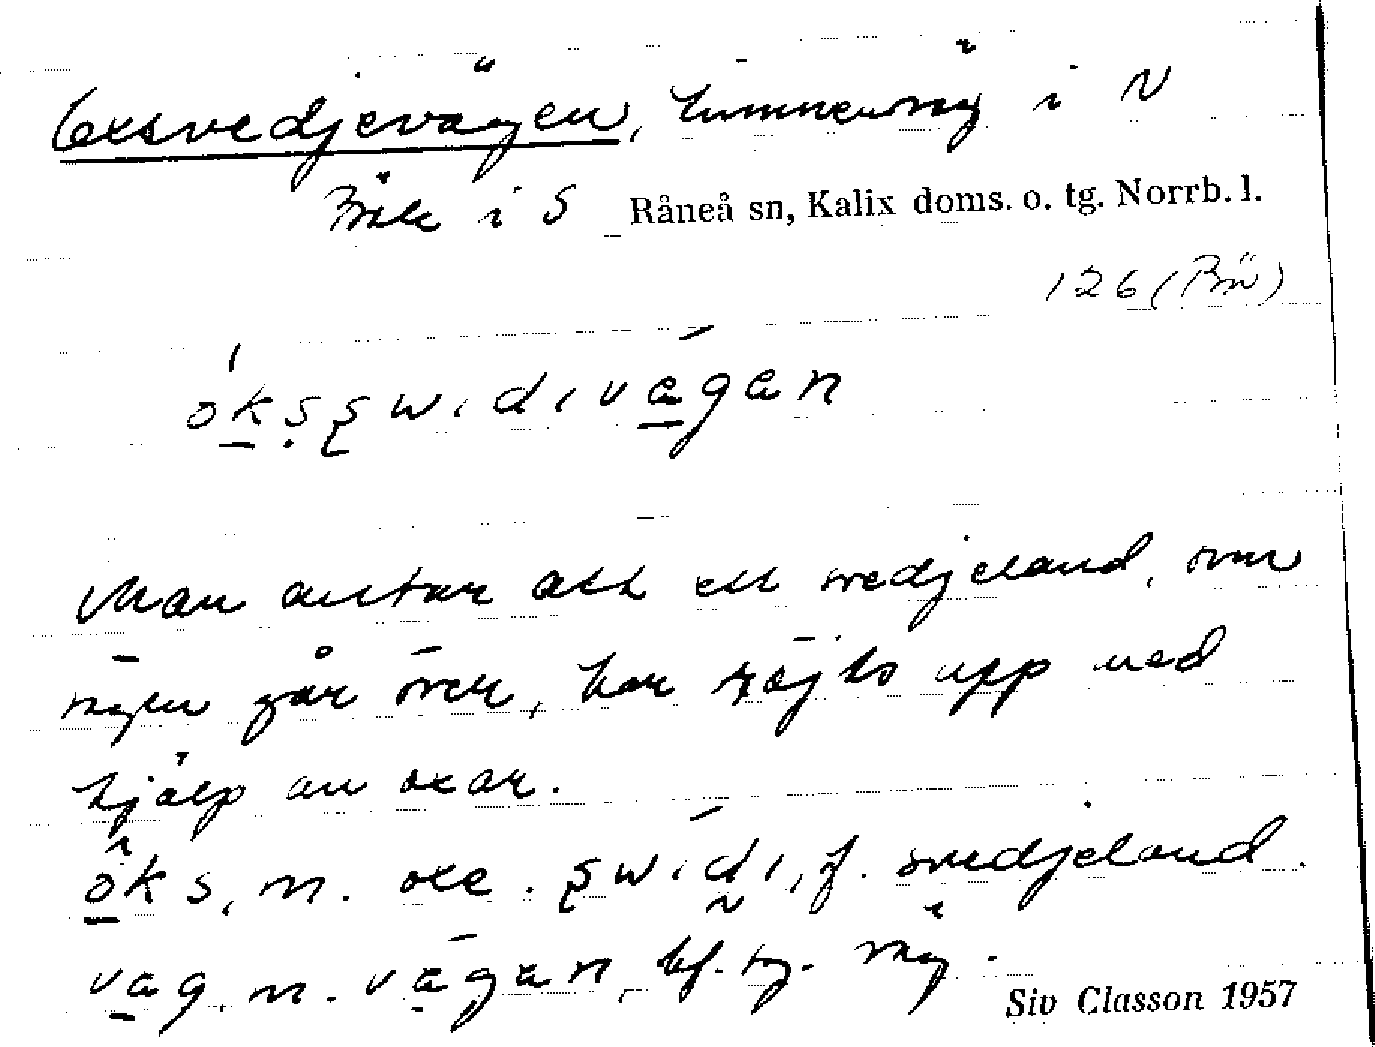 Oxsvedjevägen, timmerväg i N
Bråk i S Råneå sn, Kalix doms. o. tg. Norrb. l.
126 (Bn)
ókssẃıdıvägan
Man antar att ett svedjeland, som
vägen går över, har röjts upp med
hjälp av oxar.
öks, m. oxe. swıdı, f. svedjeland.
vag, m. vägan, bf. sg. väg.
Siv Classon 1957